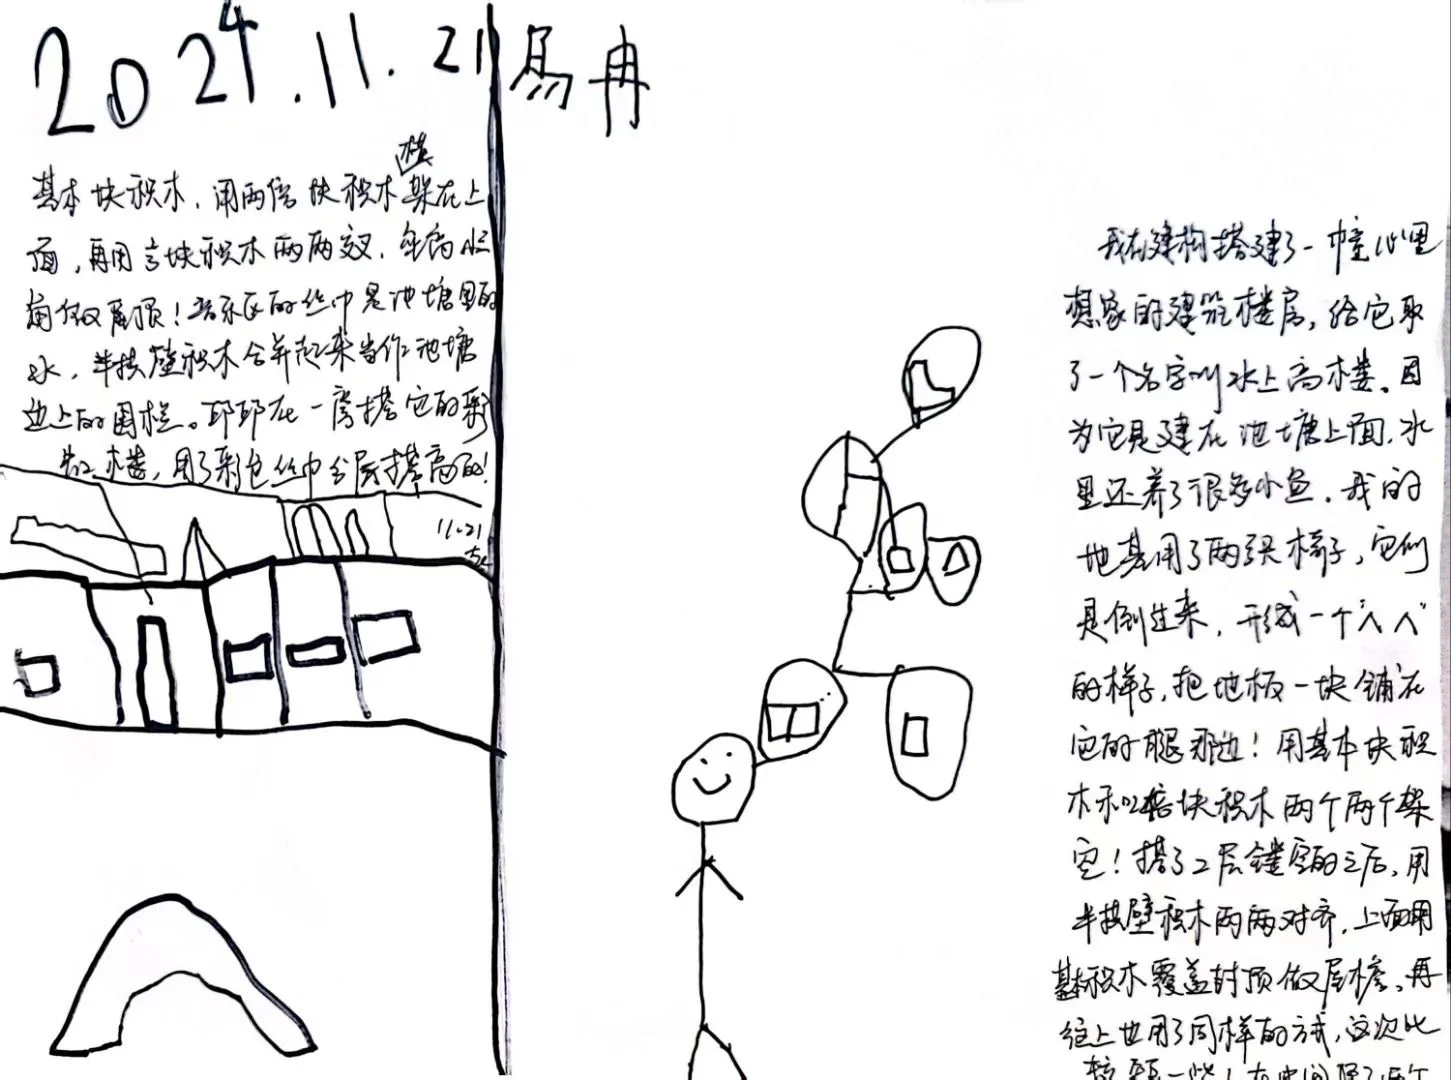 2024.11.21 易冉
横
基本块积木,用两倍块积木架在上
面,再用言块积木两两交叉,
角做屋顶!音乐区的丝巾是池塘里的
水,半拱壁积木合并起来当作池塘
边上的围栏。邱邱在一旁搭它的彩
虹楼,用了彩色丝巾分层搭高的!
11.21
我在建构搭建了一幢心里
想象的建筑楼房,给它取
了一个名字叫水上高楼。因
为它是建在池塘上面,水
里还养了很多小鱼。我的
地基用了两张椅子,它们
是倒过来,形成一个"人人"
的样子,把地板一块铺在
它的腿那边!用基本块积
木和2倍块积木两个两个架
空!搭了2层镂空的之后,用
半拱壁积木两两对齐,上面用
基本积木覆盖封顶做屋檐。再
往上也用了同样的方式,这次比